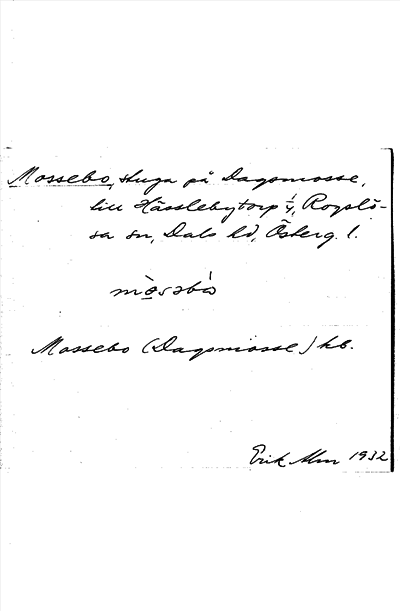 Mossebo, stuga på Dagsmosse,
till Hässlebytorp 1/4, Rogslö-
sa sn, Dals hd, Österg. l.
mòsəbó
Mossebo (Dagsmosse) kb.
Erik Alm 1932